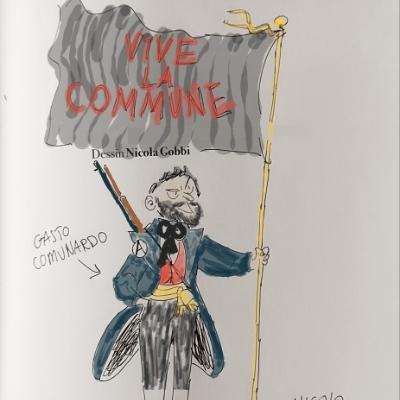 VIVE
LA
COMMUNE
Dessin Nicola Gobbi
GASTO
COMUNARDO
A